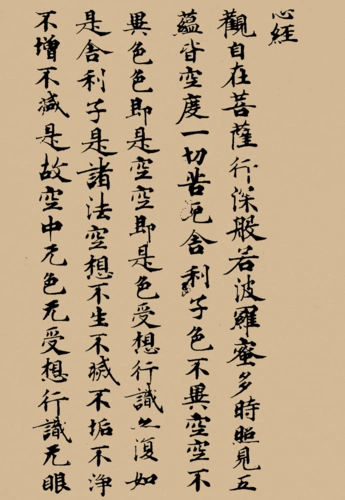 心經
觀自在菩薩行深般若波羅蜜多時照見五
蘊皆空度一切苦厄舍利子色不異空空不
異色色即是空空即是色受想行識亦復如
是舍利子是諸法空想不生不滅不垢不淨
不增不減是故空中无色无受想行識无眼